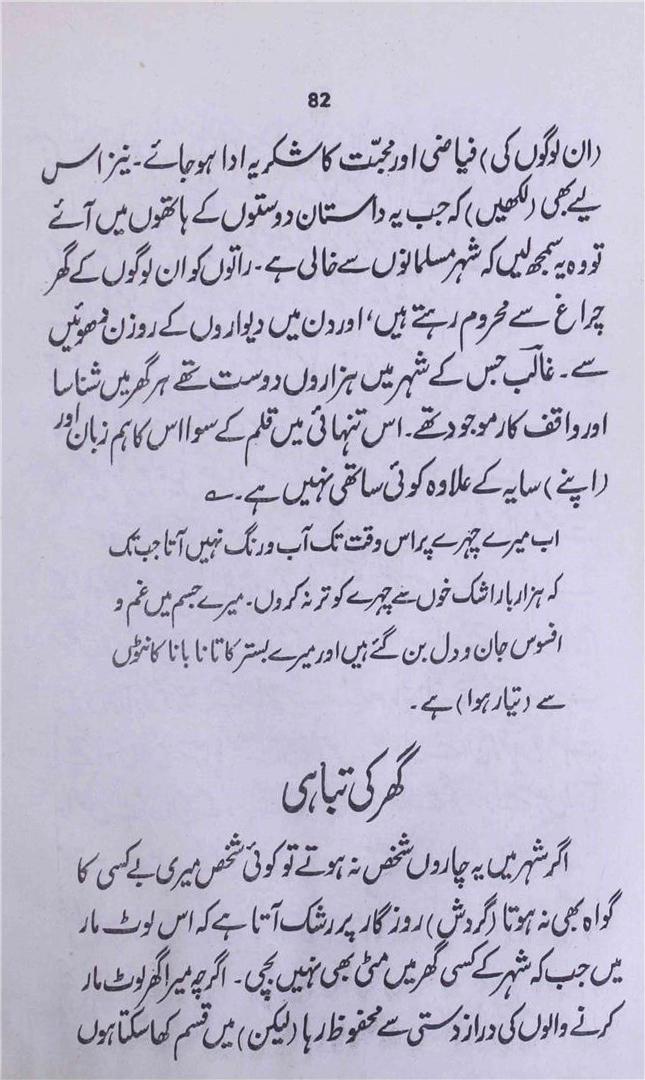 82
(ان لوگوں کی) فیاضی اور محبّت کا شکریہ ادا ہو جائے۔ نیز اس
لیے بھی (لکھیں) کہ جب یہ داستان دوستوں کے ہاتھوں میں آئے
تو وہ یہ سمجھ لیں کہ شہر مسلمانوں سے خالی ہے۔ راتوں کو ان لوگوں کے گھر
چراغ سے محروم رہتے ہیں، اور دن میں دیواروں کے روزن دھوئیں
سے۔ غالبؔ جس کے شہر میں ہزاروں دوست تھے ہر گھر میں شناسا
اور واقف کار موجود تھے۔ اس تنہائی میں قلم کے سوا اس کا ہم زبان اور
(اپنے) سایہ کے علاوہ کوئی ساتھی نہیں ہے۔ ؎
اب میرے چہرے پر اس وقت تک آب و رنگ نہیں آتا جب تک
کہ ہزار بار اشک خوں سے چہرے کو تر نہ کروں۔ میرے جسم میں غم و
افسوس جان و دل بن گئے ہیں اور میرے بستر کا تانا بانا کانٹوں
سے (تیار ہوا) ہے۔
گھر کی تباہی
اگر شہر میں یہ چاروں شخص نہ ہوتے تو کوئی شخص میری بے کسی کا
گواہ بھی نہ ہوتا (گردش) روزگار پر رشک آتا ہے کہ اس لوٹ مار
میں جب کہ شہر کے کسی گھر میں مٹی بھی نہیں بچی۔ اگرچہ میرا گھر لوٹ مار
کرنے والوں کی دراز دستی سے محفوظ رہا (لیکن) میں قسم کھا سکتا ہوں